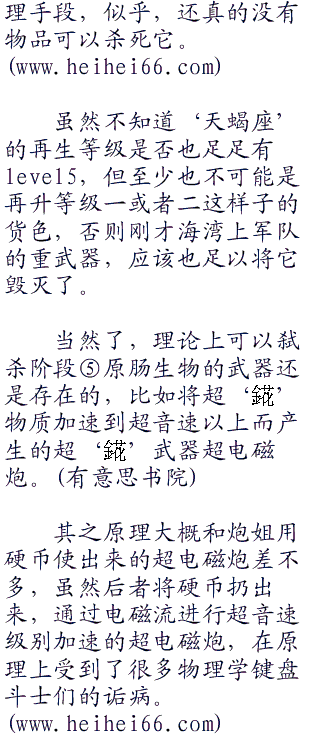 理手段，似乎，还真的没有
物品可以杀死它。
(www.heihei66.com)
虽然不知道‘天蝎座’
的再生等级是否也足足有
level5，但至少也不可能是
再升等级一或者二这样子的
货色，否则刚才海湾上军队
的重武器，应该也足以将它
毁灭了。
当然了，理论上可以弑
杀阶段⑤原肠生物的武器还
是存在的，比如将超‘錵’
物质加速到超音速以上而产
生的超‘錵’武器超电磁
炮。(有意思书院)
其之原理大概和炮姐用
硬币使出来的超电磁炮差不
多，虽然后者将硬币扔出
来，通过电磁流进行超音速
级别加速的超电磁炮，在原
理上受到了很多物理学键盘
斗士们的诟病。
(www.heihei66.com)